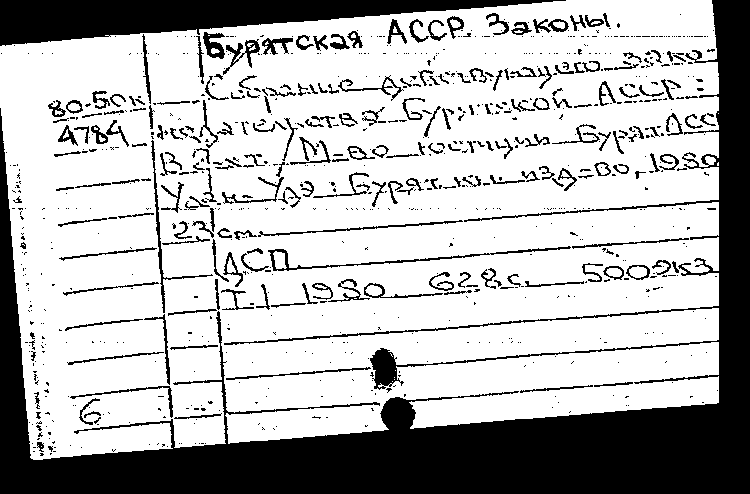 Бурятская АССР. Законы.
Собрание действующего зако-
80-50к
4784 нодательства Бурятской АССР:
В 2-х т. М-во юстиции Бурят. АССР
Улан-Удэ: Бурят. кн. изд-во, 1980
23 см.
ДСП
Т. 1 1980. 628 с. 500 экз
6